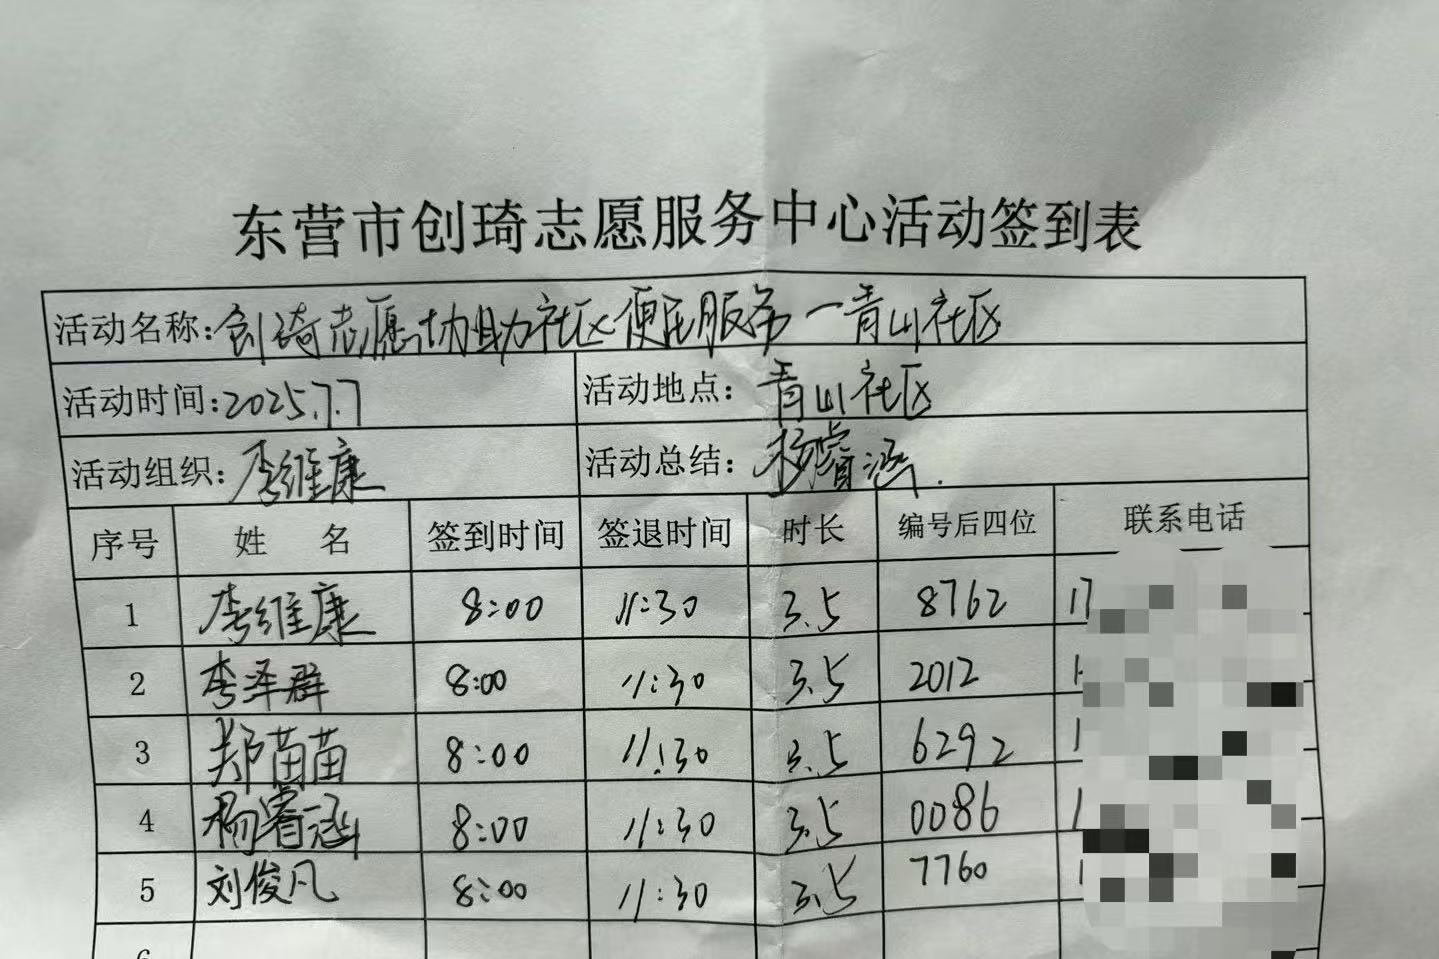 东营市创琦志愿服务中心活动签到表
活动名称:创琦志愿协助社区便民服务一青山社区
活动时间:2025.7.7 活动地点:青山社区
活动组织:李维康 活动总结:杨睿涵.
序号 姓 名 签到时间 签退时间 时长 编号后四位 联系电话
1 李维康 8:00 11:30 3.5 8762 17
2 李泽群 8:00 11:30 3.5 2012 1
3 郑苗苗 8:00 11:30 3.5 6292 1
4 杨睿涵 8:00 11:30 3.5 0086 1
5 刘俊凡 8:00 11:30 3.5 7760 1
6